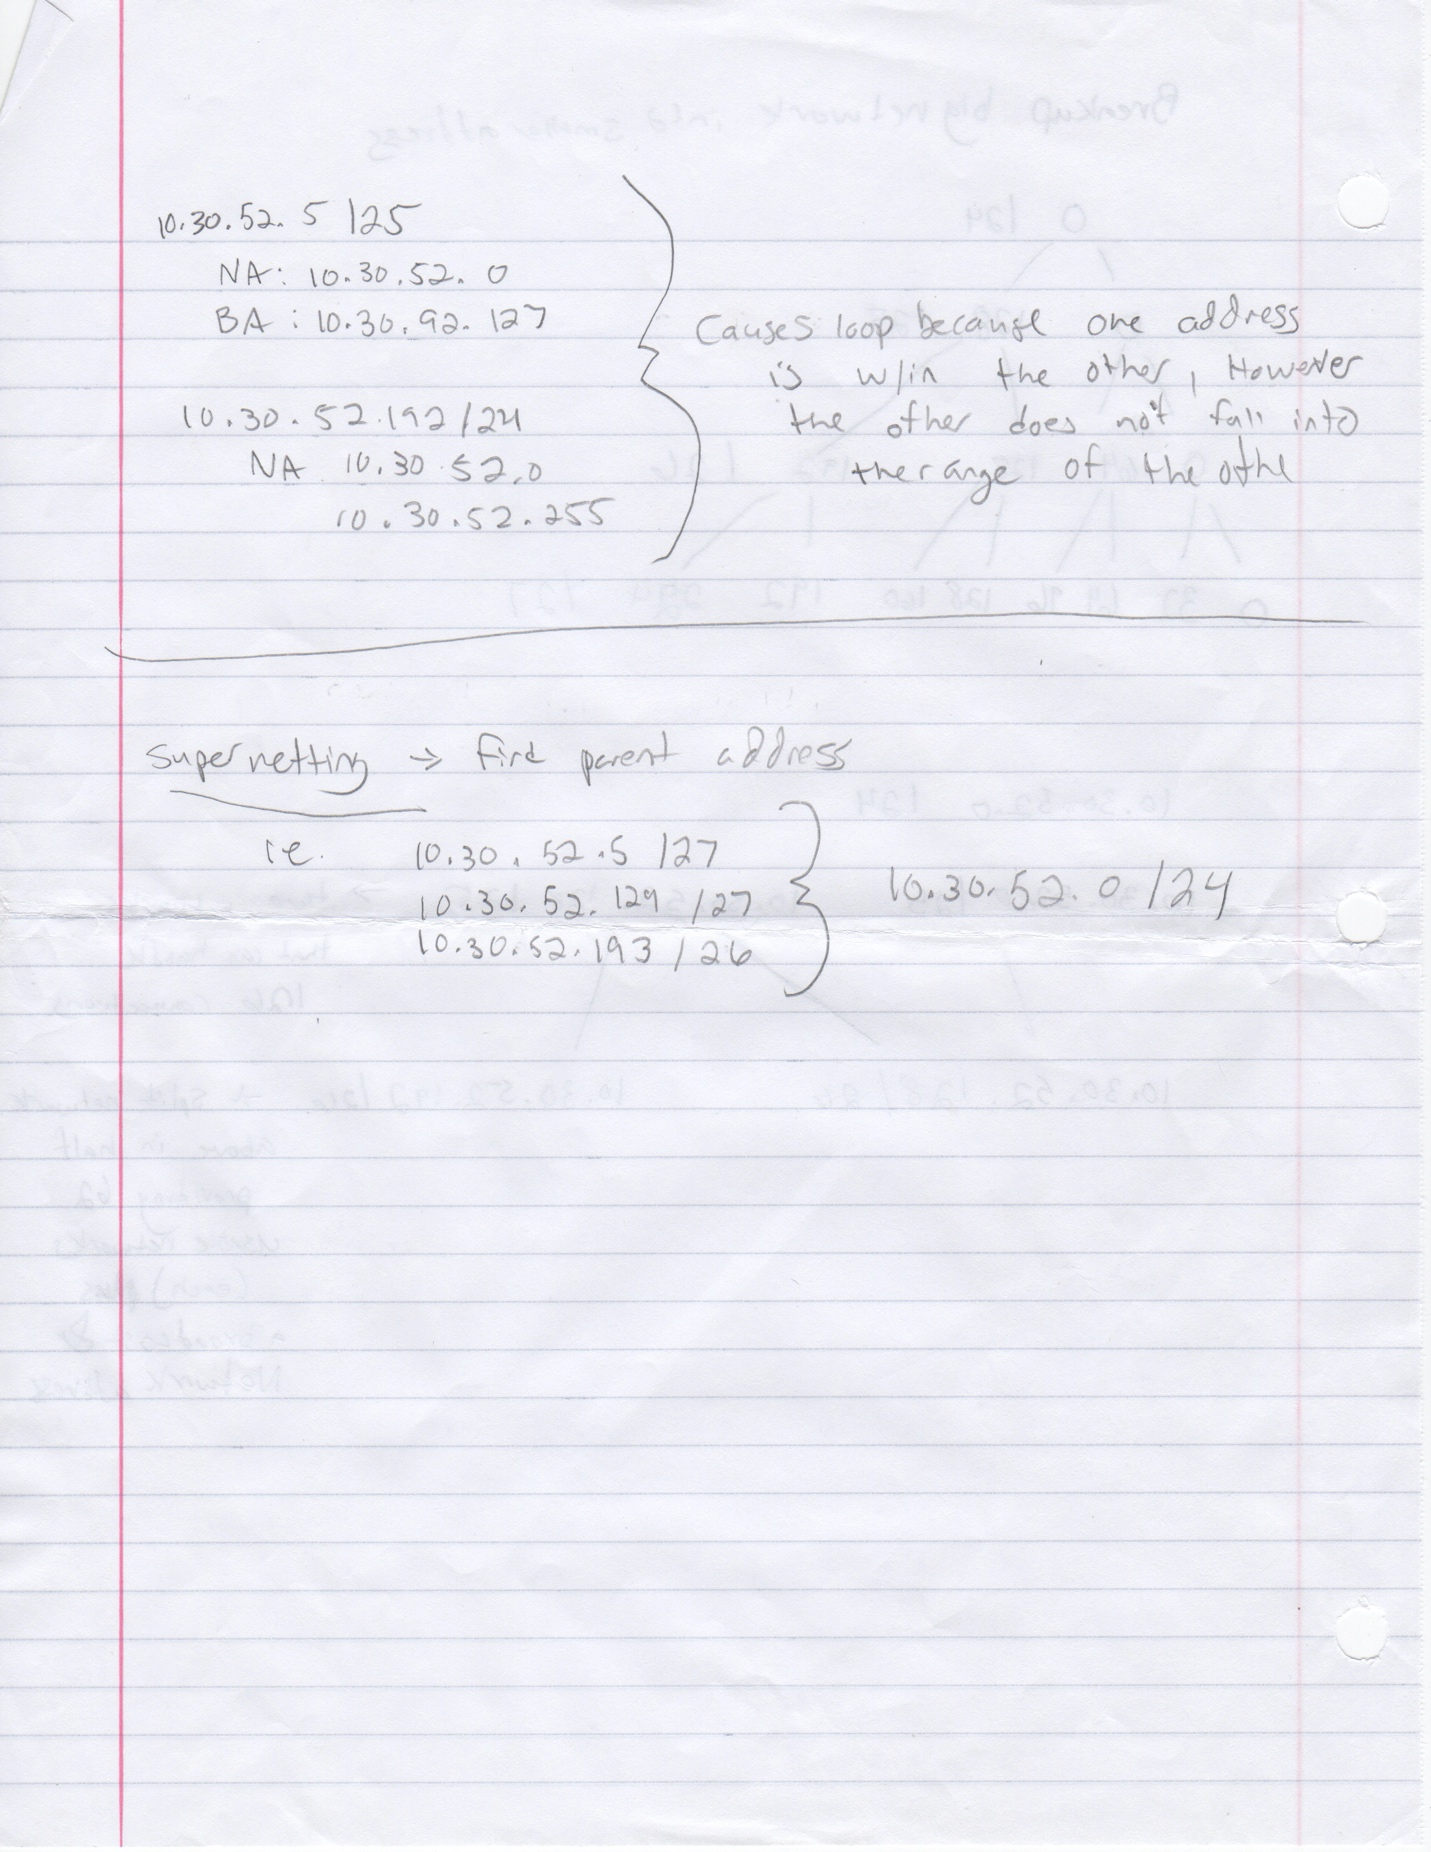 10.30.52.5 /25
NA: 10.30.52.0
BA: 10.30.92.127
10.30.52.192/24
NA 10.30.52.0
10.30.52.255
Causes loop because one address
is w/in the other, However
the other does not fall into
the range of the othe
Supernetting → find parent address
ie. 10.30.52.5 /27
10.30.52.129 /27
10.30.52.193 /26
10.30.52.0 /24